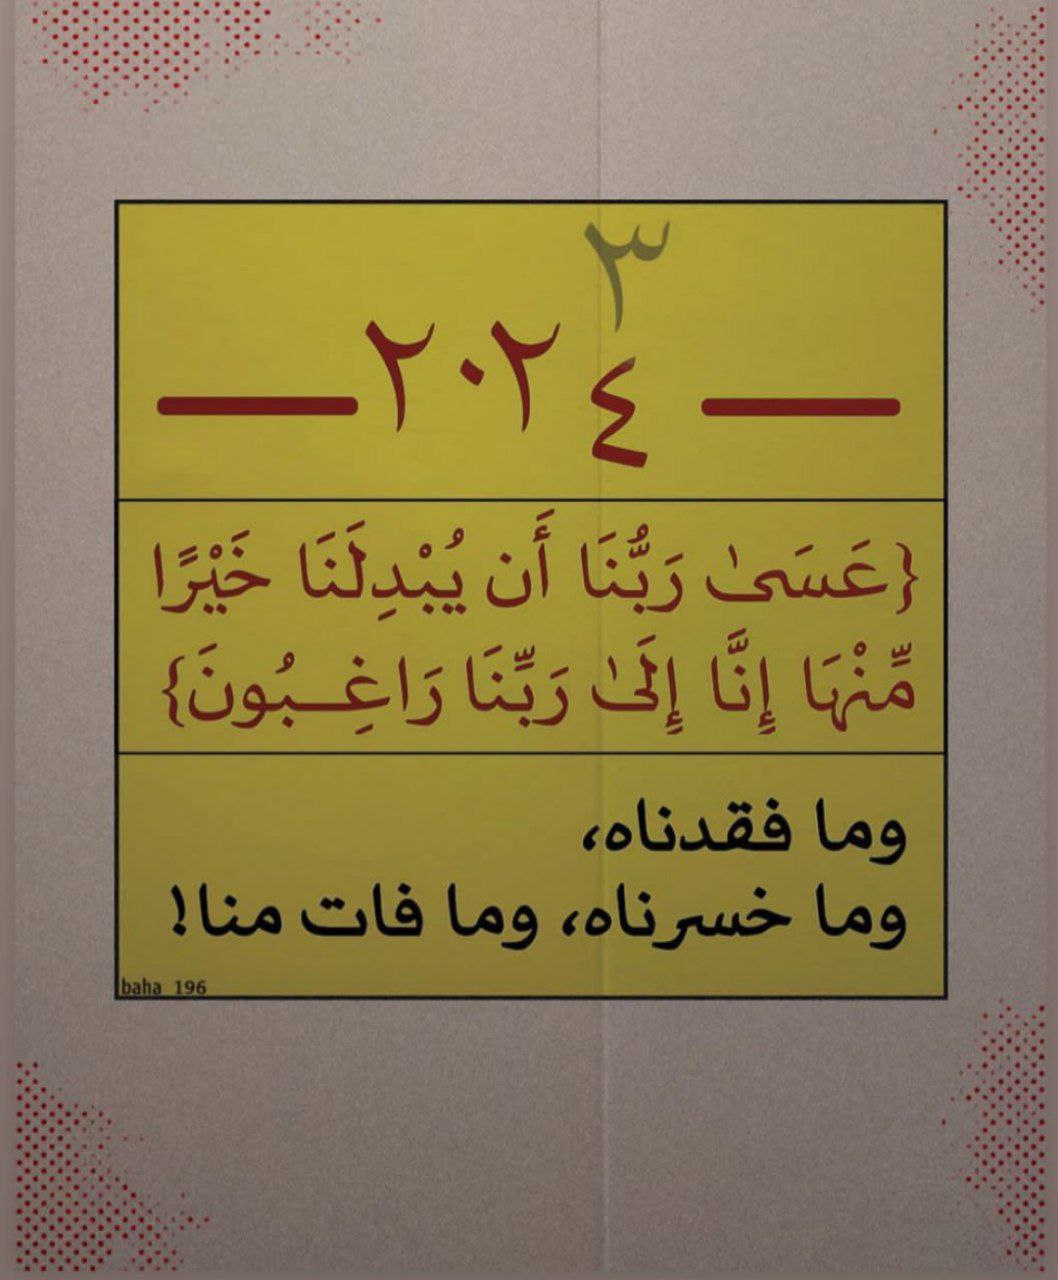 ٣
٢٠٢٤
{عَسَىٰ رَبُّنَا أَن يُبْدِلَنَا خَيْرًا
مِّنْهَا إِنَّا إِلَىٰ رَبِّنَا رَاغِـــبُونَ}
وما فقدناه،
وما خسرناه، وما فات منا!
baha_196